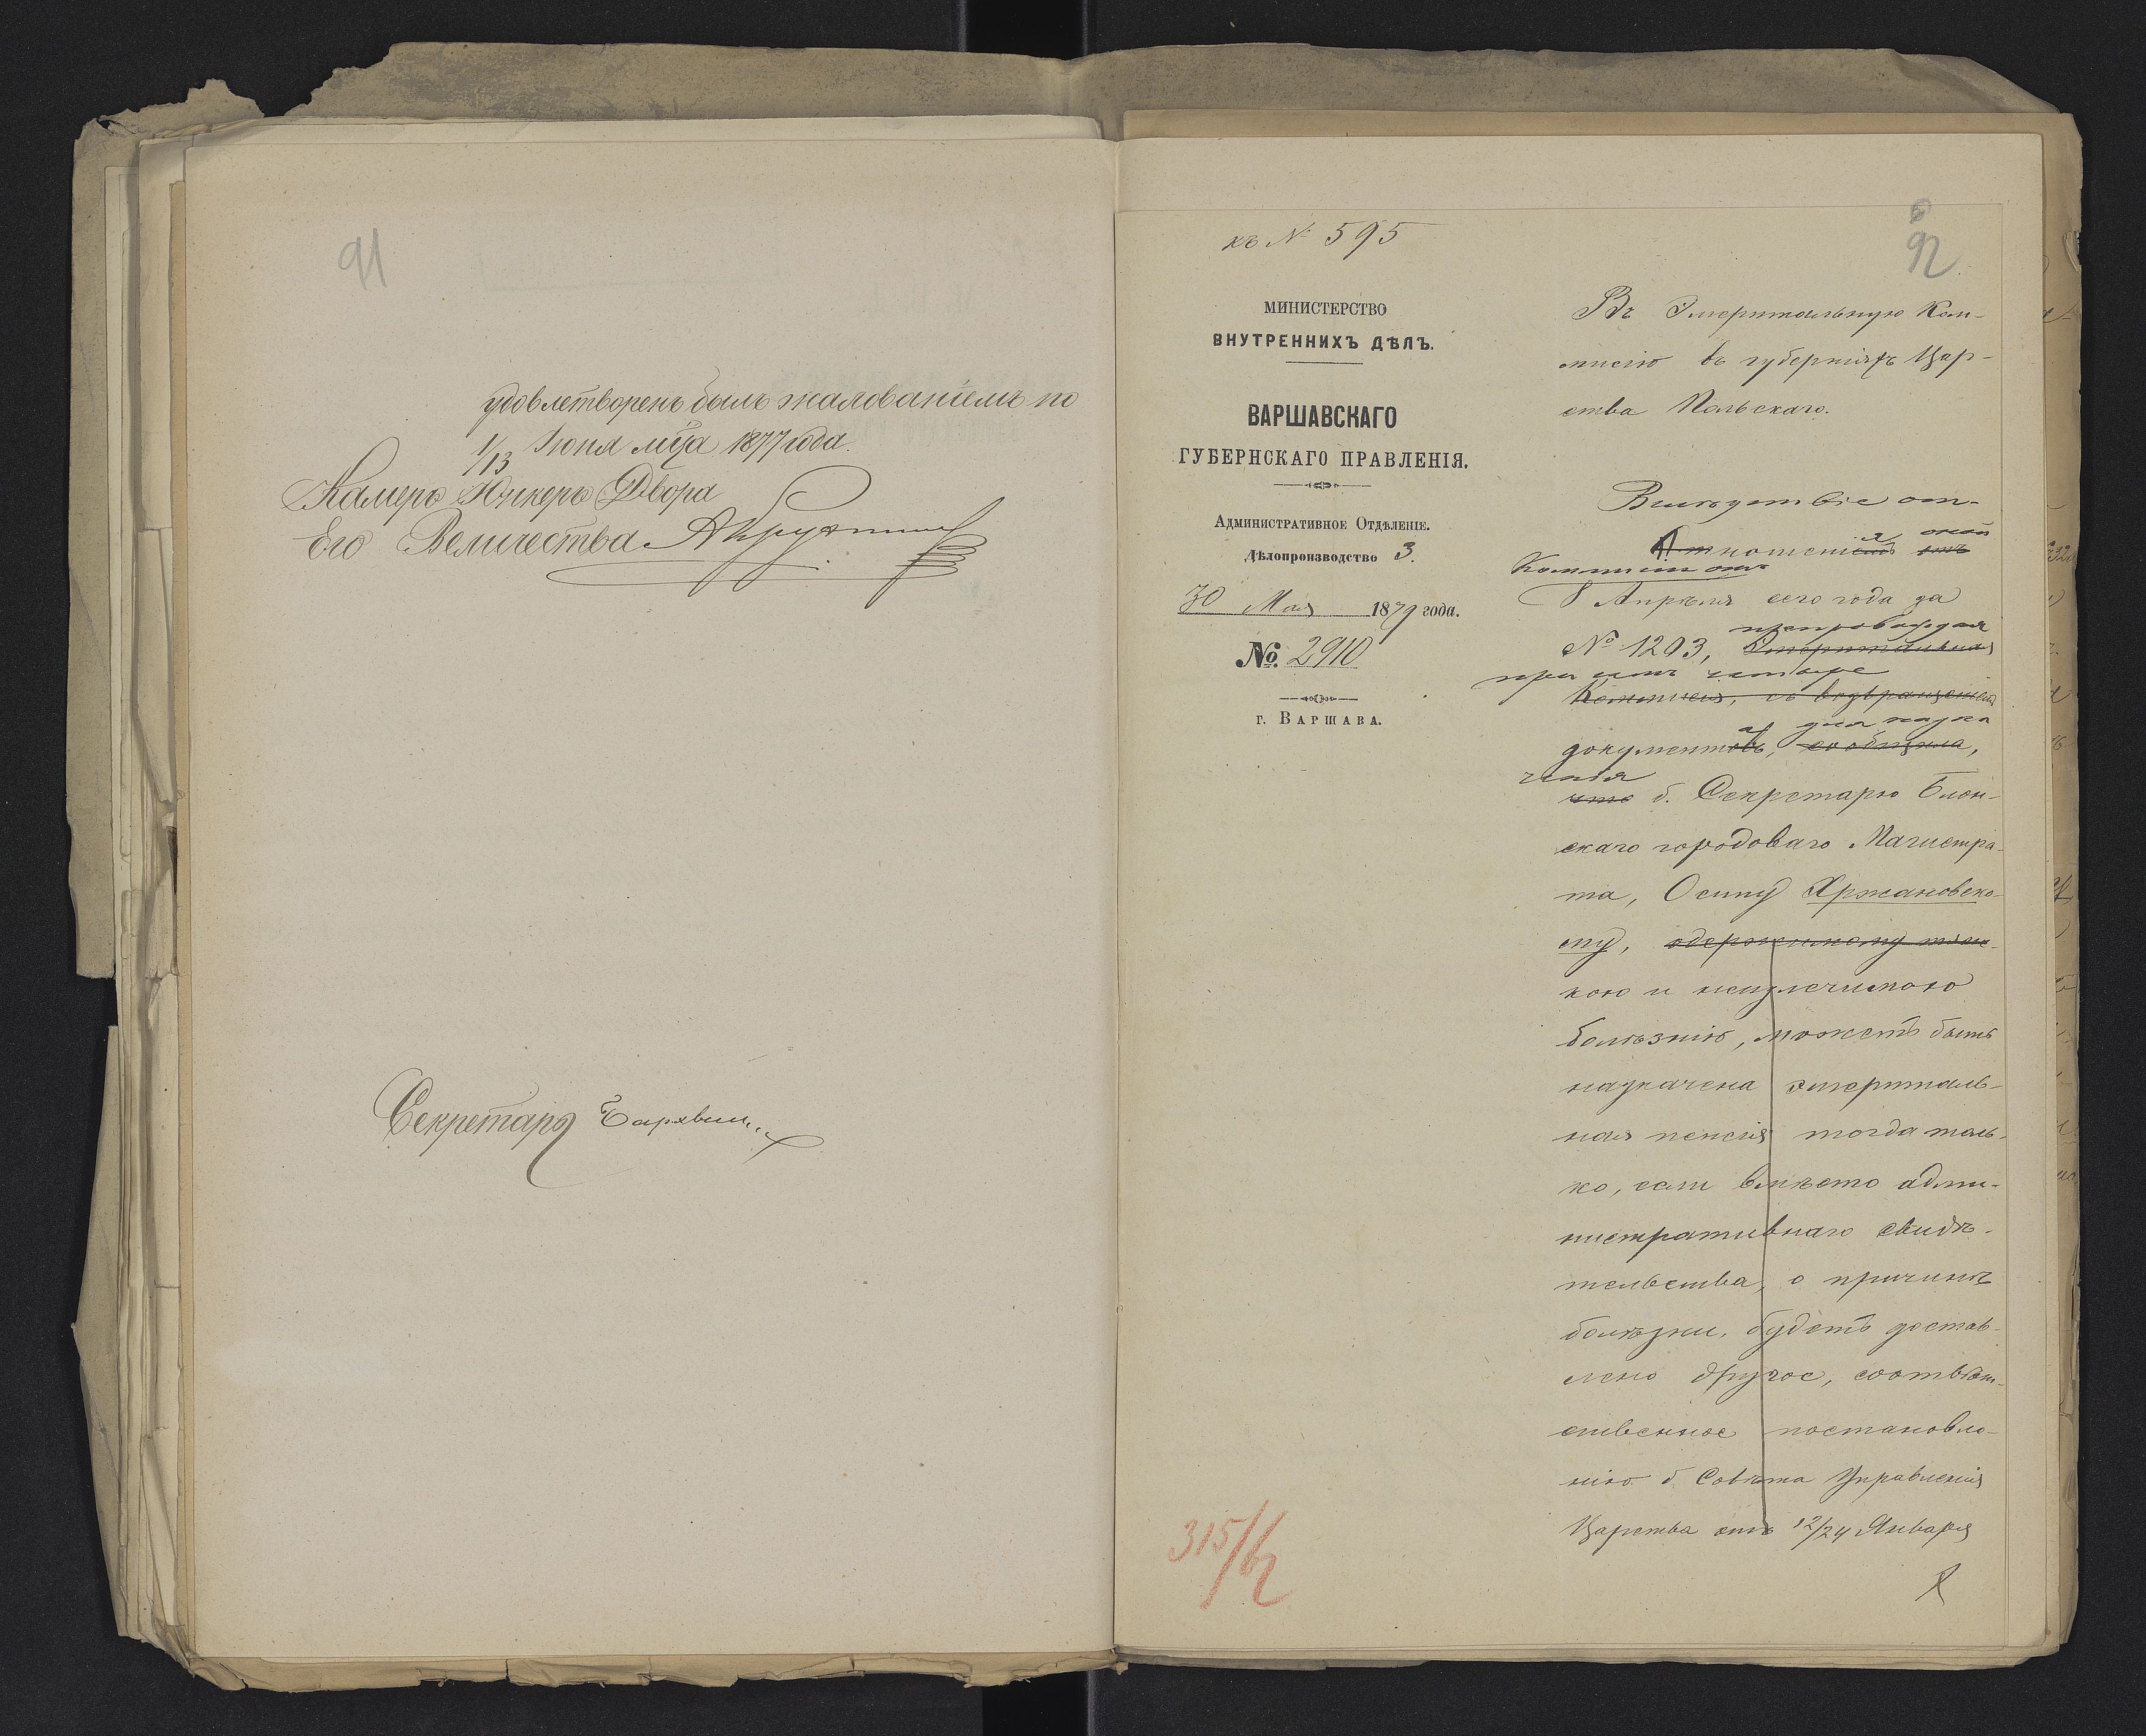 91
удовлетворенъ былъ жалованіемъ по
1/13 Іюня мца 1877 года.
Камеръ Юнкеръ Двора
Его Величества
Секретарь
къ № 595
92
МИНИСТЕРСТВО
ВНУТРЕННИХЪ ДѢЛЪ.
ВАРШАВСКАГО
ГУБЕРНСКАГО ПРАВЛЕНІЯ.
Административное Отдѣленіе.
Дѣлопроизводство 3.
30 Мая 1879 года.
№ 2910
г. ВАРШАВА.
315/92
Въ Эмеритальную Ком-
мисію въ губерніяхъ Цар-
ства Польскаго.
Вслѣдствіе от-
ношенія оной
Коммисіи отъ
8 Апрѣля сего года за
№ 1203, Эмеритальная
препровождая
при семъ четыре
Коммисія, съ возвращеніемъ
документовъ, сообщила,
для назна
ченія
что б. Секретарю Блон-
скаго городоваго Магистра-
та, Осипу Хржановско-
му, одержимому тяж-
кою и неизлечимою
болѣзнію, можетъ быть
назначена эмериталь-
ная пенсія тогда толь-
ко, если вмѣсто адми-
нистративнаго свидѣ-
тельства, о причинѣ
болѣзни, будетъ достав-
лено другое, соотвѣт-
ственное постановле-
нію б. Совѣта Управленія
Царства отъ 12/24 Января